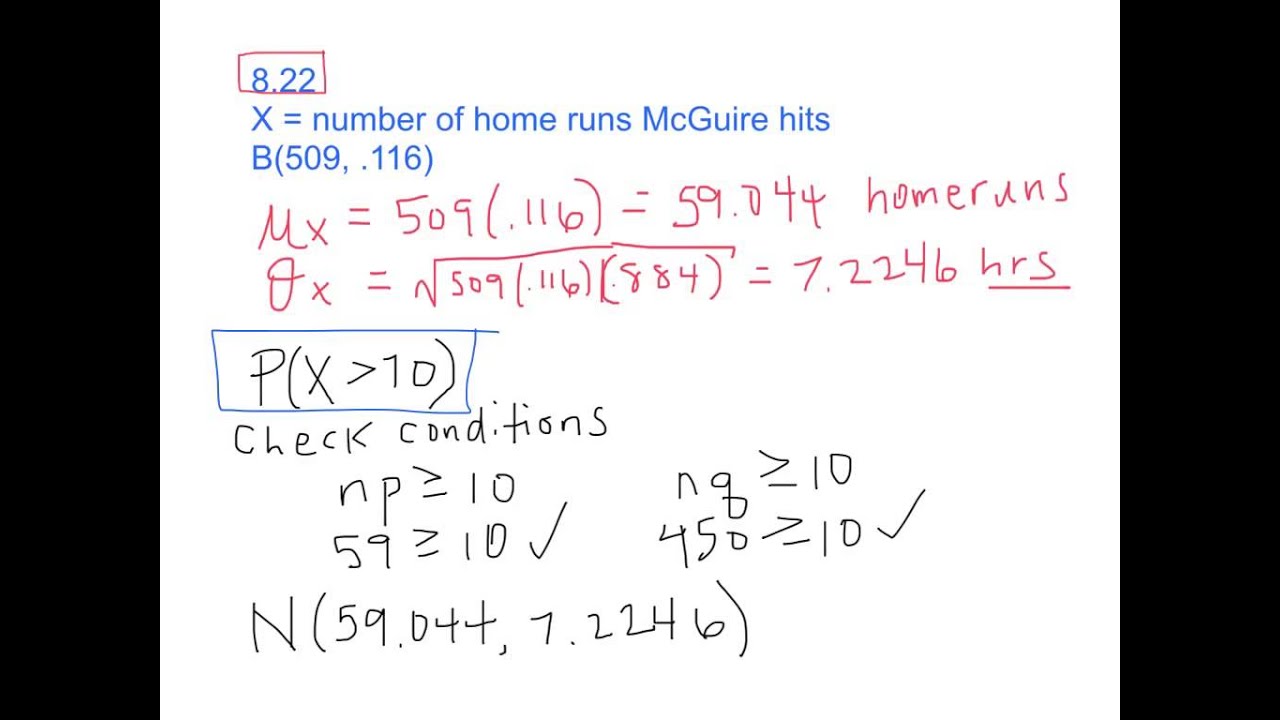 8.22
X = number of home runs McGuire hits
B(509, .116)
μx = 509(.116) = 59.044 homeruns
θx = √509(.116)(.884) = 7.2246 hrs
P(X >10)
Check conditions
np ≥ 10 nq ≥ 10
59 ≥ 10 ✓ 450 ≥ 10 ✓
N(59.044, 7.2246)